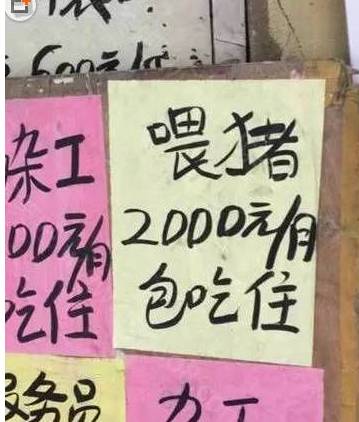 600元/
杂工
00元/月
吃住
喂猪
2000元/月
包吃住
服务员